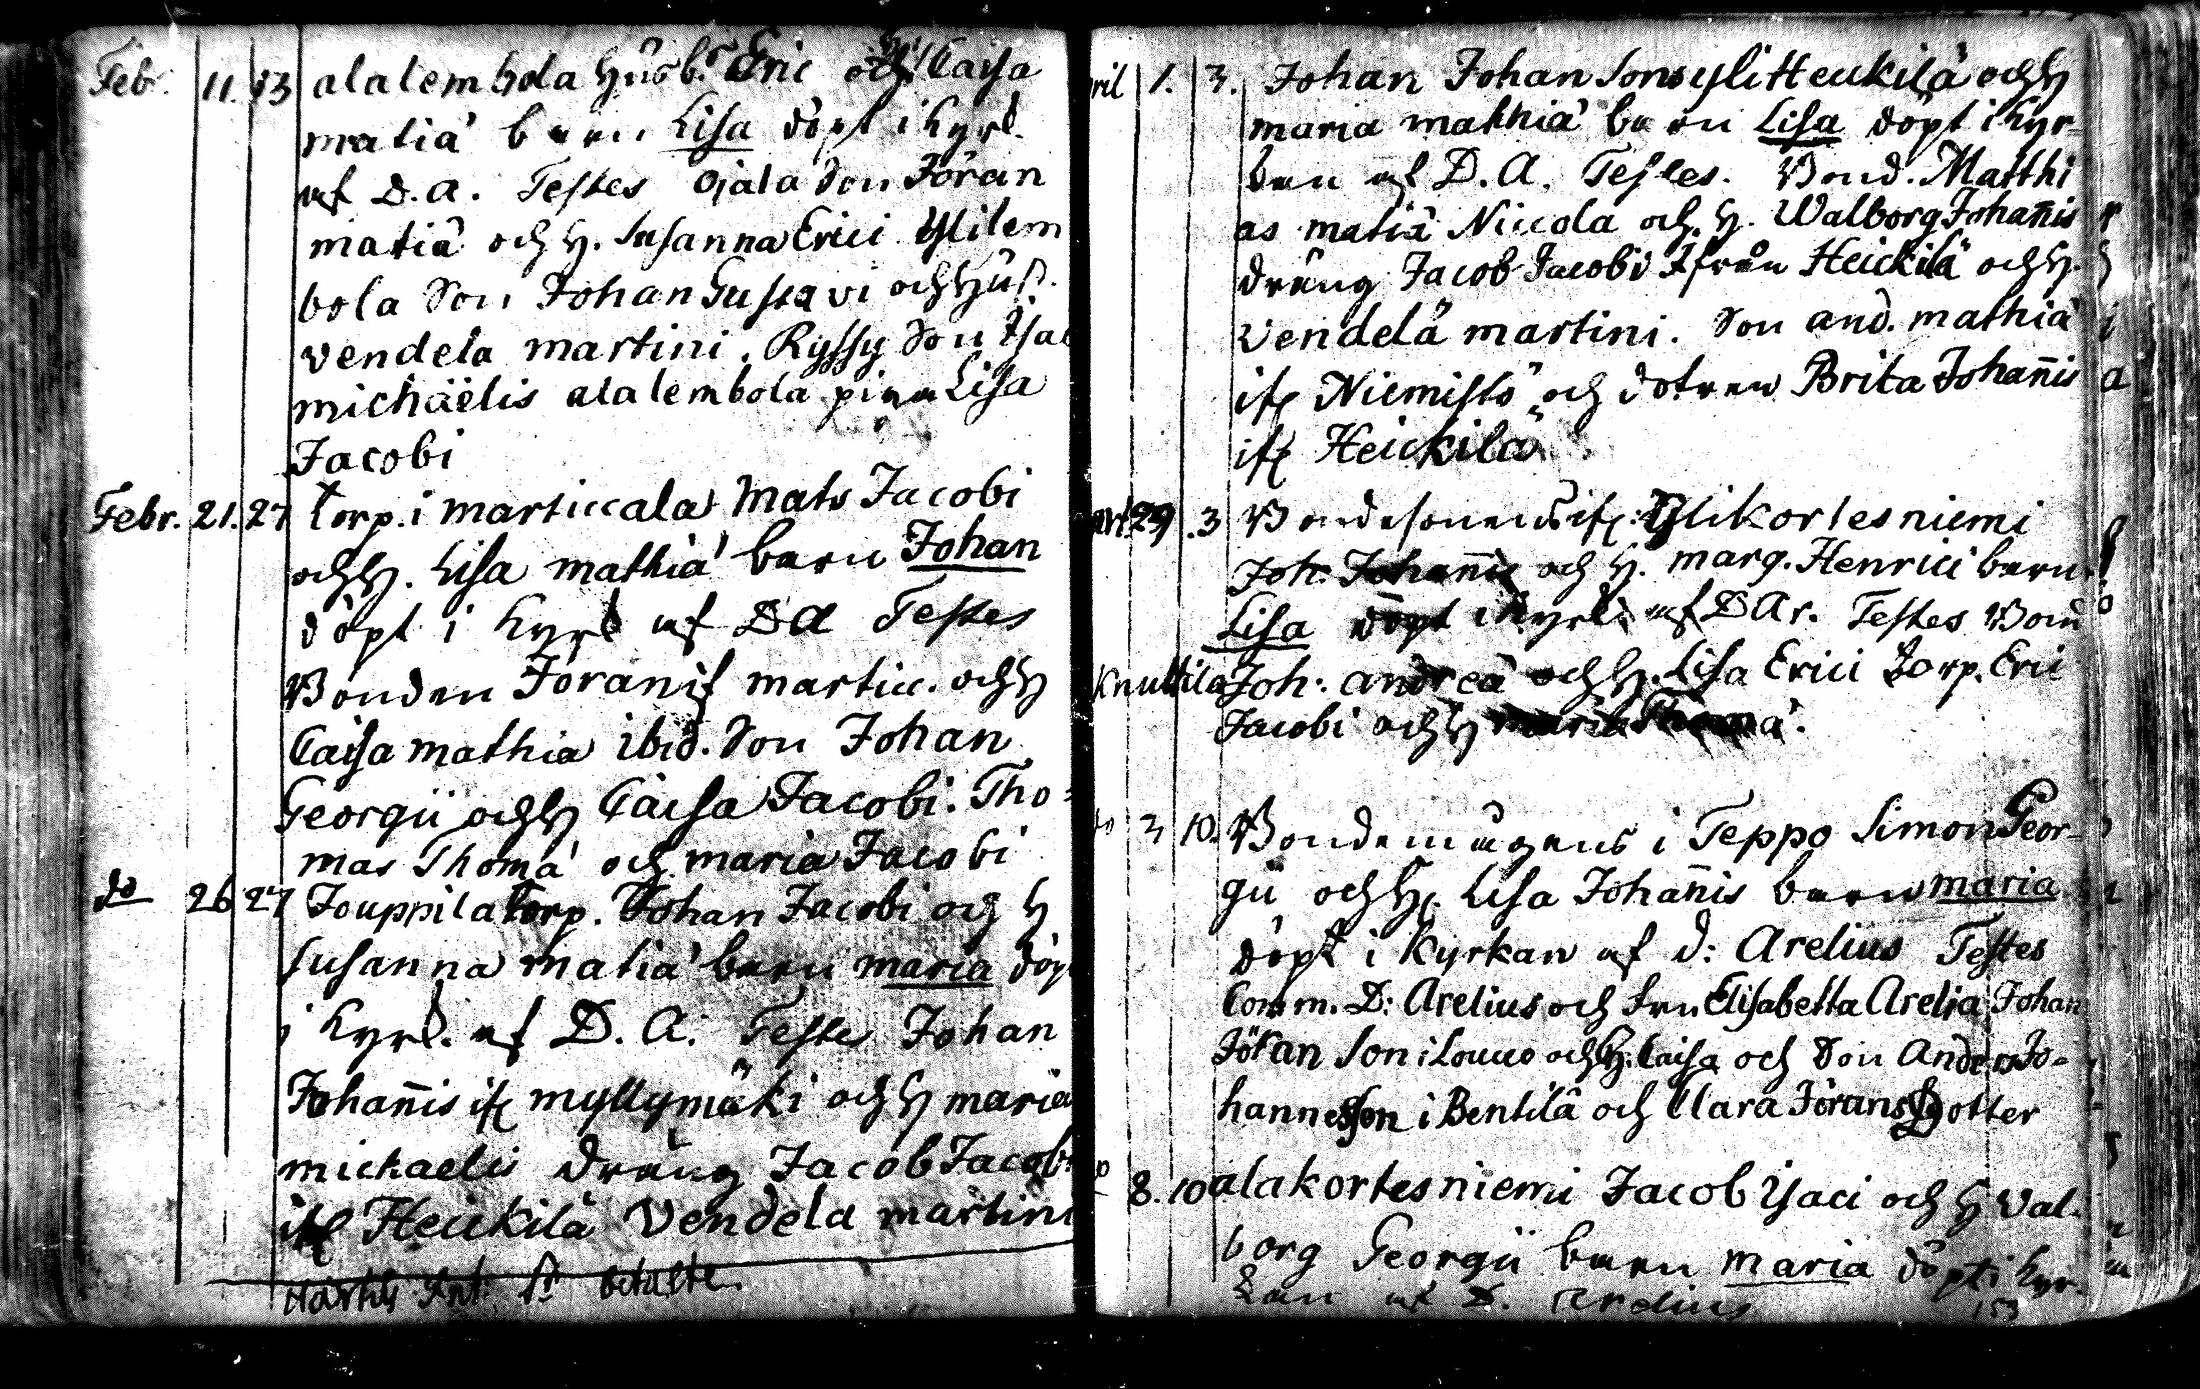 Febr. 11. 13 alalembola Husb. Eric och Caisa
matiä barn Lisa döpt i Kyrk.
af D. A. Testes Ojala Son Jöran
matiä och H. Susanna Erici Ylilem
bola Son Johan Gustavi och Hus.
Vendela martini. Ryssy Son Isac
michäelis alalembola pigan Lisa
Jacobi
Febr. 21. 27 Torp. i marticcala Mats Jacobi
och H. Lisa mathiä barn Johan
döpt i Kyrk af D A Testes
Bonden Jöran if martic. och H
Caisa mathiä ibid. Son Johan
Georgii och H Caisa Jacobi. Tho=
mas Thomä och maria Jacobi
do 26 27 Jouppila Torp. Johan Jacobi och H
Susanna matiä barn maria döpt
i Kyrk. af D. A. Teste Johan
Johannis if myllymäki och H maria
michaelis dräng Jacob Jacobi
if Heickilä Vendela martini
betalte
ril 1. 3. Johan Johan Sons yli Heickilä och H
maria mathiä barn Lisa döpt i Kyr-
kan af D. A. Testes. Bond. Matthi
as matiä Niccola och H. Walborg Johannis
dräng Jacob Jacobi ifrån Heickilä och H.
Vendelä martini. Son and. mathiä
if Niemistö och dotren Brita Johannis
if Heickilä
29 .3 Bondesonens if: Ylikortesniemi
Joh. Johannis och H. marg. Henrici barn
Lisa döpt i Kyrk. af D Ar. Testes Bond
Knuttila Joh. andreä och H. Lisa Erici Torp. Eric
Jacobi och H maria Thomä.
3 10. Bondemågens i Teppo Simon Geor-
gii och H. Lisa Johannis barn maria
döpt i Kyrkan af D: Arelius Testes
Comm. D: Arelius och fru Elisabetta Arelia Johan
Jöran Son i Louco och H. Caisa och Son Anders Jo=
hannesson i Bentilä och Clara Jörans Dotter
8. 10 alakortesniemi Jacob Isaci och H Val-
borg Georgii barn maria döpt i Kyr-
kan af D. Arelius
153